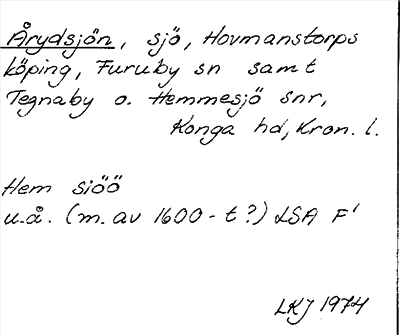 Årydsjön, sjö, Hovmanstorps
köping, Furuby sn samt
Tegnaby o. Hemmesjö snr,
Konga hd, Kron. l.
Hem siöö
u.å. (m. av 1600-t?) LSA F'
LKJ 1974